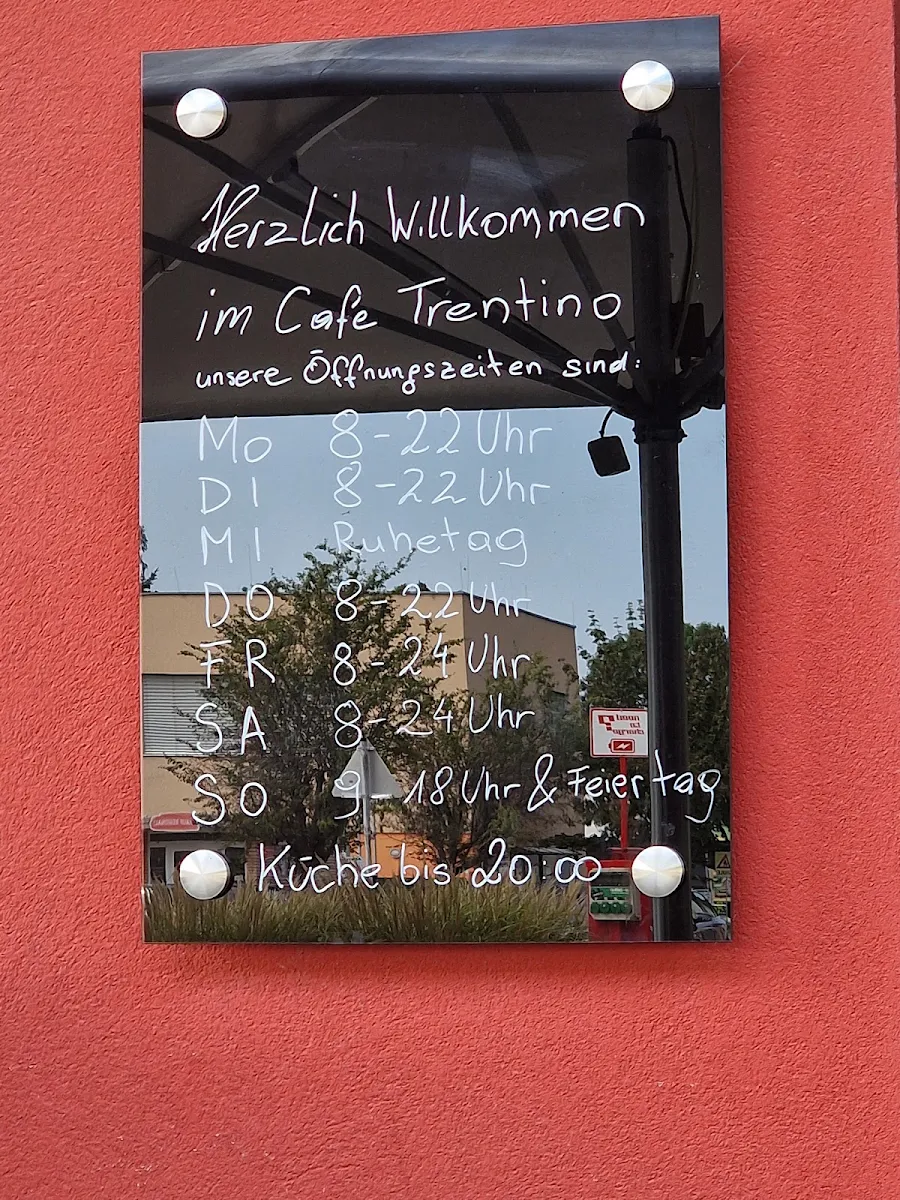 Herzlich Willkommen
im Cafe Trentino
unsere Öffnungszeiten sind:
Mo 8-22 Uhr
DI 8-22 Uhr
MI Ruhetag
DO 8-22 Uhr
FR 8-24 Uhr
SA 8-24 Uhr
SO 9-18 Uhr & Feiertag
Küche bis 20.00